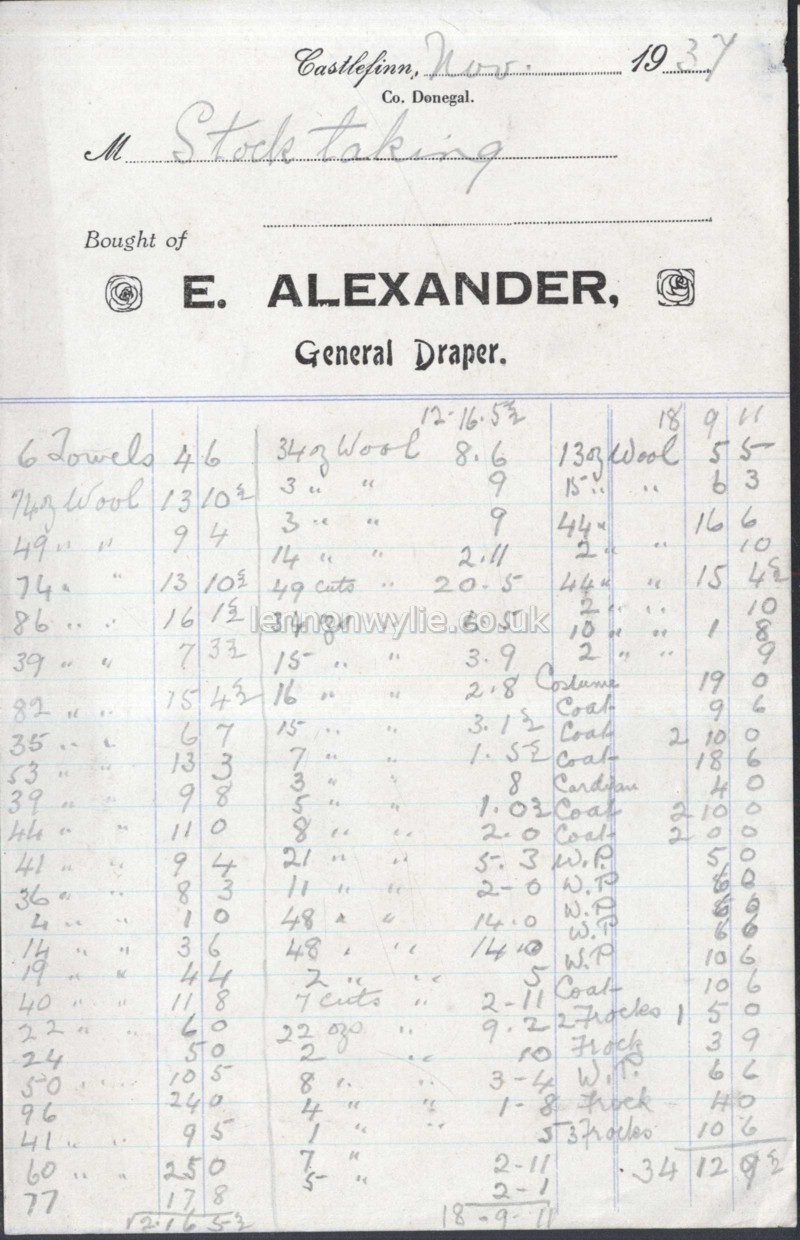 Castlefinn, Nov. 1937
Co. Donegal.
M Stock taking
Bought of
E. ALEXANDER,
General Draper.
6 Towels 4 6
74 oz Wool 13 10½
49 " " 9 4
74 " " 13 10½
86 " " 16 1½
39 " " 7 3½
82 " " 15 4½
35 " " 6 7
53 " " 13 3
39 " " 9 8
44 " " 11 0
41 " " 9 4
36 " " 8 3
4 " " 1 0
14 " " 3 6
19 " " 4 4
40 " " 11 8
22 " " 6 0
24 5 0
50 " " 10 5
96 24 0
41 " " 9 5
60 " " 25 0
77 17 8
12.16 5½
12-16.5½
34 oz Wool 8.6
3 " " 9
3 " " 9
14 " " 2.11
49 cuts " 20.5
34 oz " 6.5
15 " " 3.9
16 " " 2.8
15 " " 3.1½
7 " " 1.5½
3 " " 8
5 " " 1.0½
8 " " 2.0
21 " " 5.3
11 " " 2-0
48 " " 14.0
48 " " 14.0
2 " " 5
7 cuts " 2-11
22 ozs " 9.2
2 " 10
8 " " 3-4
4 " " 1-8
1 " " 5
7 " 2-11
5 " 2-1
18-9-11
18 9 11
13 oz Wool 5 5
15 " " 6 3
44 " 16 6
2 " " 10
44 " " 15 4½
2 " " 10
10 " " 1 8
2 " " 9
Costume 19 0
Coat 9 6
Coat 2 10 0
Coat 18 6
Cardigan 4 0
Coat 2 10 0
Coat 2 0 0
W.P 5 0
W.P 6 0
W.P 6 6
W.P 6 6
W.P 10 6
Coat 10 6
2 Frocks 1 5 0
Frock 3 9
W.P. 6 6
Frock 4 0
3 Frocks 10 6
34 12 9½
lennonwylie.co.uk